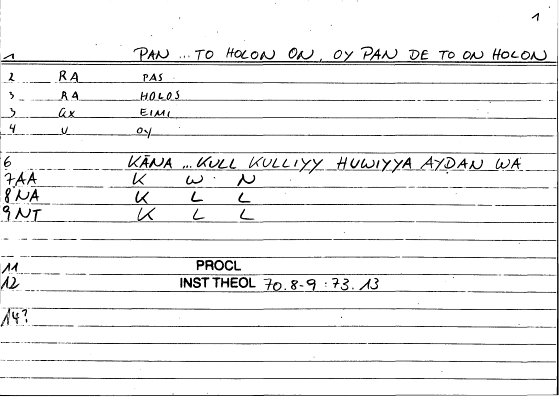 1
1 PAN ... TO HOLON ON, OY PAN DE TO ON HOLON
2 RA PAS
3 RA HOLOS
3 Gx EIMI
4 U OY
6 KĀNA ... KULL KULLIYY HUWIYYA AYḌAN WA
7AA K W N
8NA K L L
9NT K L L
11 PROCL
12 INST THEOL 70.8-9 : 73.13
14?